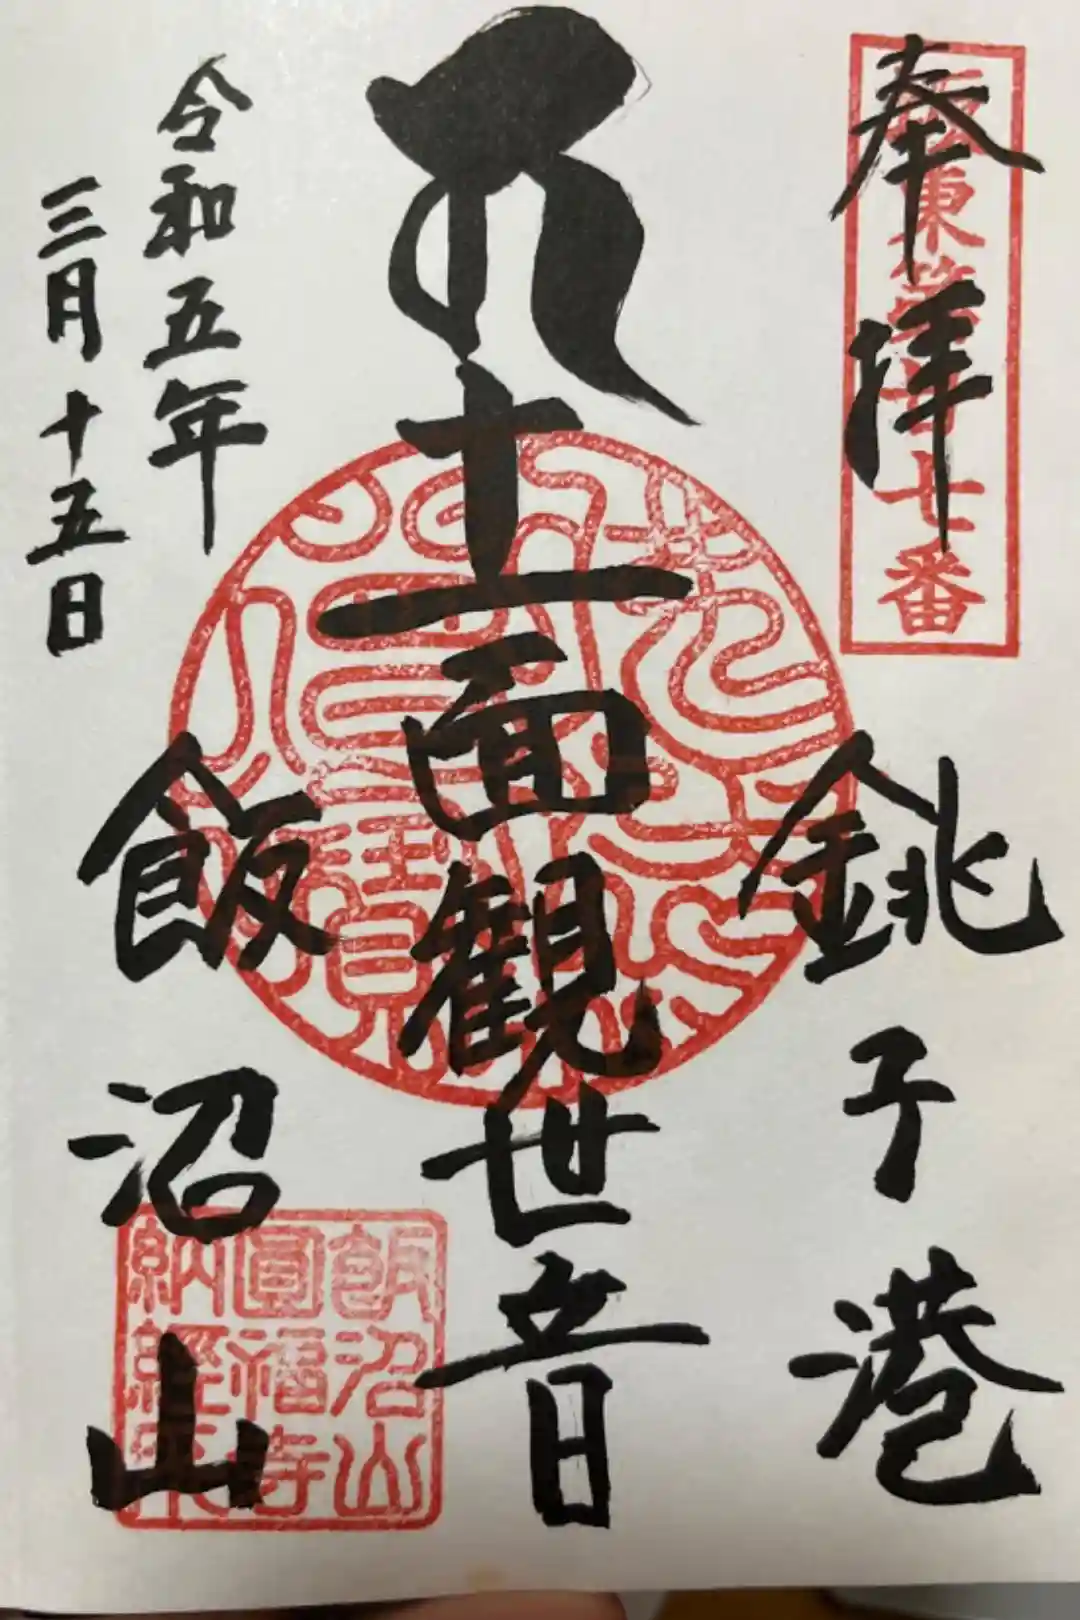 奉拝
坂東第廿七番
銚子港
十一面観世音
飯沼山
令和五年
三月十五日
飯沼山
圓福寺
納経